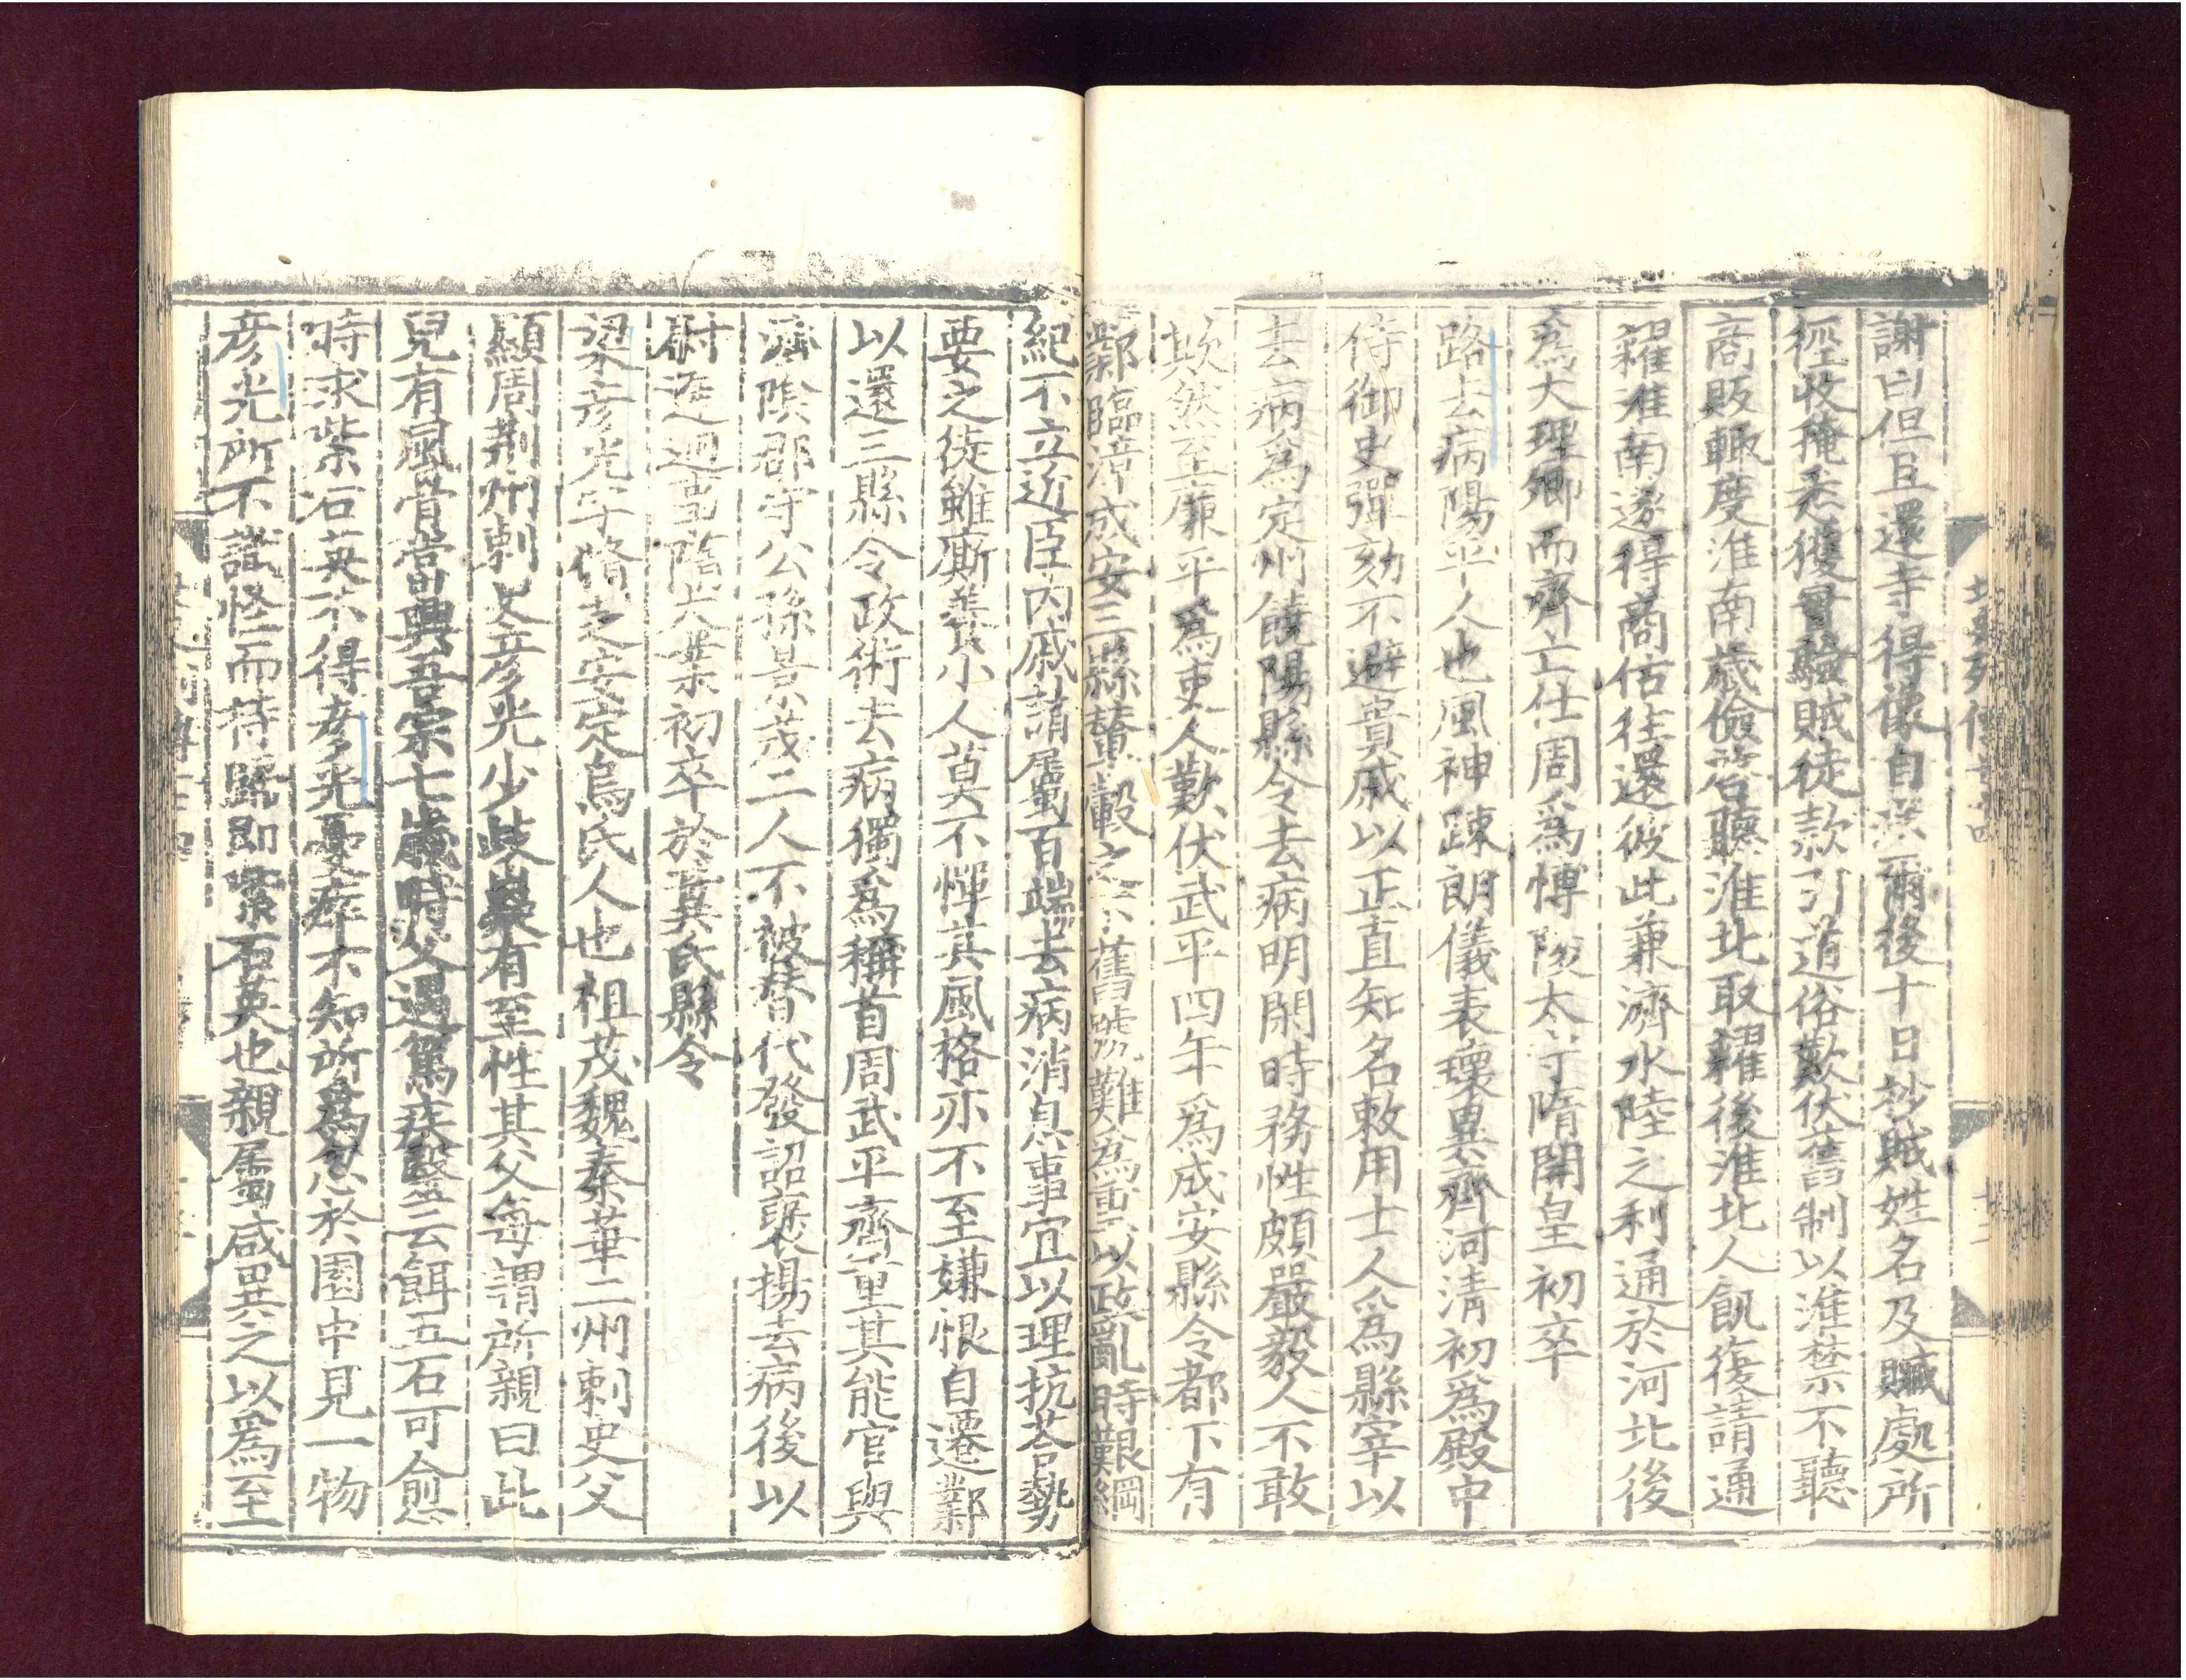 謝曰但且還寺得像自送爾後十日抄賊姓名及贓處所
徑收掩悉獲實驗賊徒款引道俗歎伏舊制以淮禁不聽
商販輒度淮南歲儉啓聽淮北取糴後淮北人飢復請通
糴淮南遂得商估往還彼此兼濟水陸之利通於河北後
爲大理卿而齊亡仕周爲博陵太守隋開皇初卒
路去病陽平人也風神疎朗儀表瓌異齊河清初爲殿中
侍御史彈劾不避貴戚以正直知名敕用士人爲縣宰以
去病爲定州饒陽縣令去病明閑時務性頗嚴毅人不敢
欺然至廉平爲吏人歎伏武平四年爲成安縣令都下有
鄴臨漳成安三縣輦轂之下舊號難爲重以政亂時艱綱
紀不立近臣內戚請屬百端去病消息事宜以理抗荅勢
要之徒雖廝養小人莫不憚其風格亦不至嫌恨自遷鄴
以還三縣令政術去病獨爲稱首周武平齊重其能官與
濟陰郡守公孫景茂二人不被替代發詔襃揚去病後以
尉遲迥事隂大業初卒於冀氏縣令
梁彦光字脩芝安定烏氏人也祖茂魏秦華二州刺史父
顯周荆州刺史彦光少岐嶷有至性其父每謂所親曰此
兒有風骨當興吾宗七歲時父遇篤疾醫云餌五石可愈
時求紫石英不得彦光憂瘁不知所爲忽於園中見一物
彦光所不識怪而持歸即紫石英也親屬咸異之以爲至